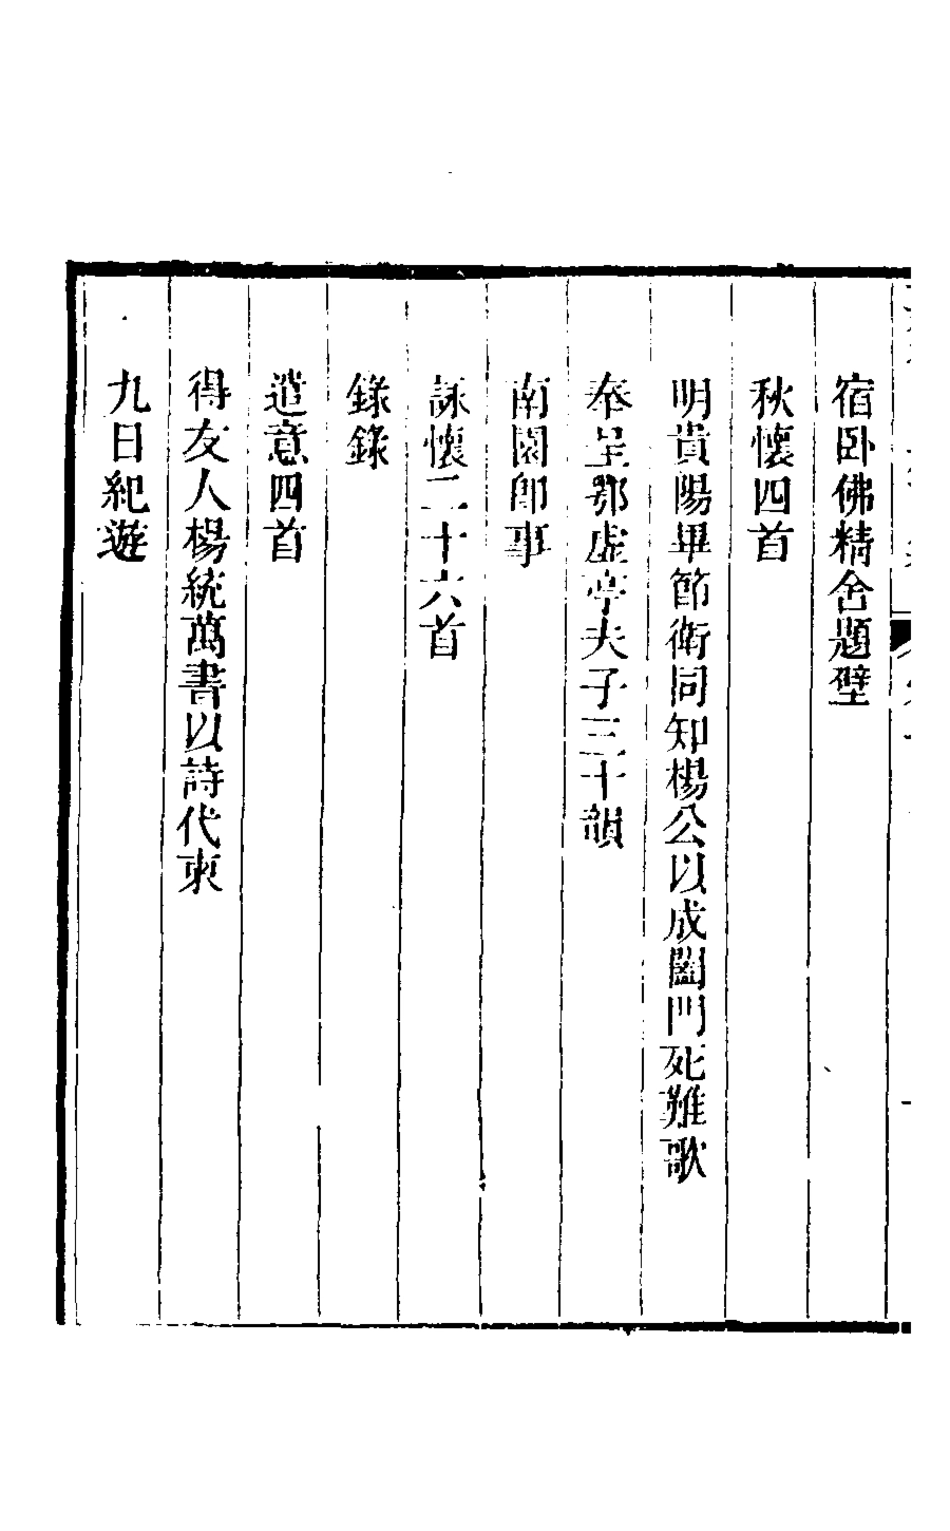 宿卧佛精舍題壁
秋懷四首
明貴陽畢節衛同知楊公以成闔門死難歌
奉呈鄂虛亭夫子三十韻
南園卽事
詠懷二十六首
錄錄
遣意四首
得友人楊統萬書以詩代柬
九日紀遊